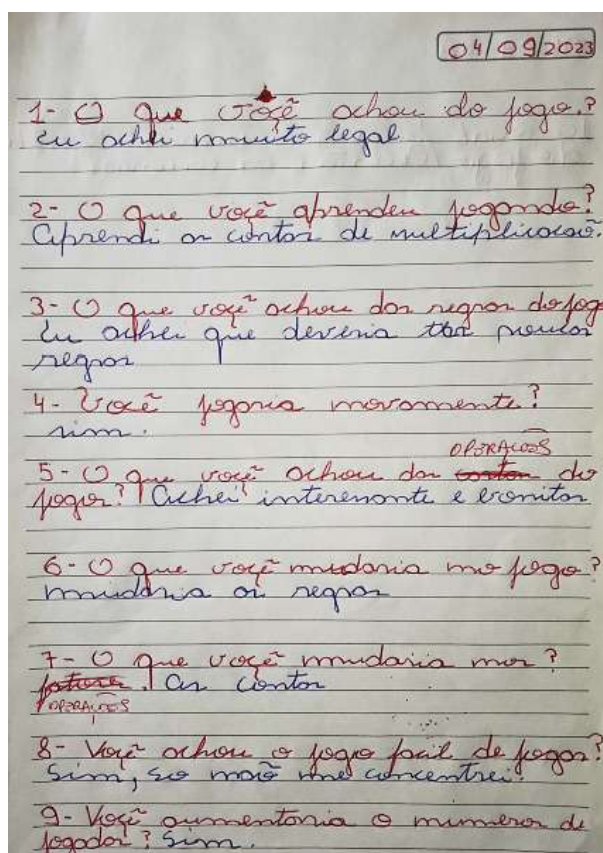 04/09/2023
1- O que você achou do jogo.?
eu achei muito legal
2- O que voçê aprendeu jogando?
Aprendi as contas de multiplicacaõ.
3- O que voçê achou das regras do jog
Eu achei que deveria ter poucas
regras
4- Você jogaria novamente?
sim.
OPERAÇOES
5- O que voçê achou das contas do
jogos? Achei interesante e bonitas
6- O que voçê mudaria no jogo?
mudaria as regras
7- O que voçê mudaria nas ?
. As contas
OPERAÇOES
8- Voçê achou o jogo facil de jogar?
Sim, so naõ me concentrei.
9- Voçê aumentaria o numeros de
jogador? Sim.